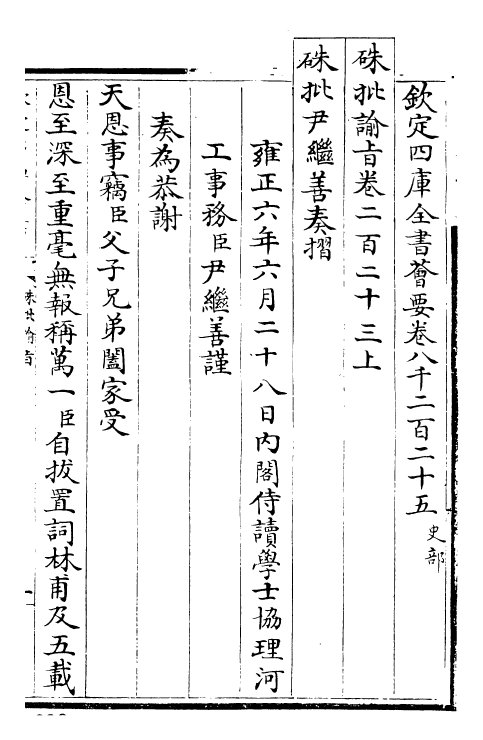 欽定四庫全書薈要卷八千二百二十五 史部
硃批諭旨卷二百二十三上
硃批尹繼善奏摺
雍正六年六月二十八日內閣侍讀學士協理河
工事務臣尹繼善謹
奏為恭謝
天恩事竊臣父子兄弟闔家受
恩至深至重毫無報稱萬一臣自拔置詞林甫及五載
硃批諭旨